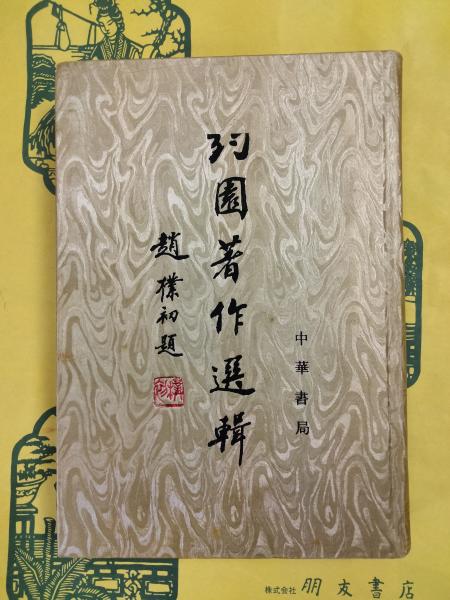 園著作選輯
趙樸初題
樸初
中華書局
株式会社 朋友書店